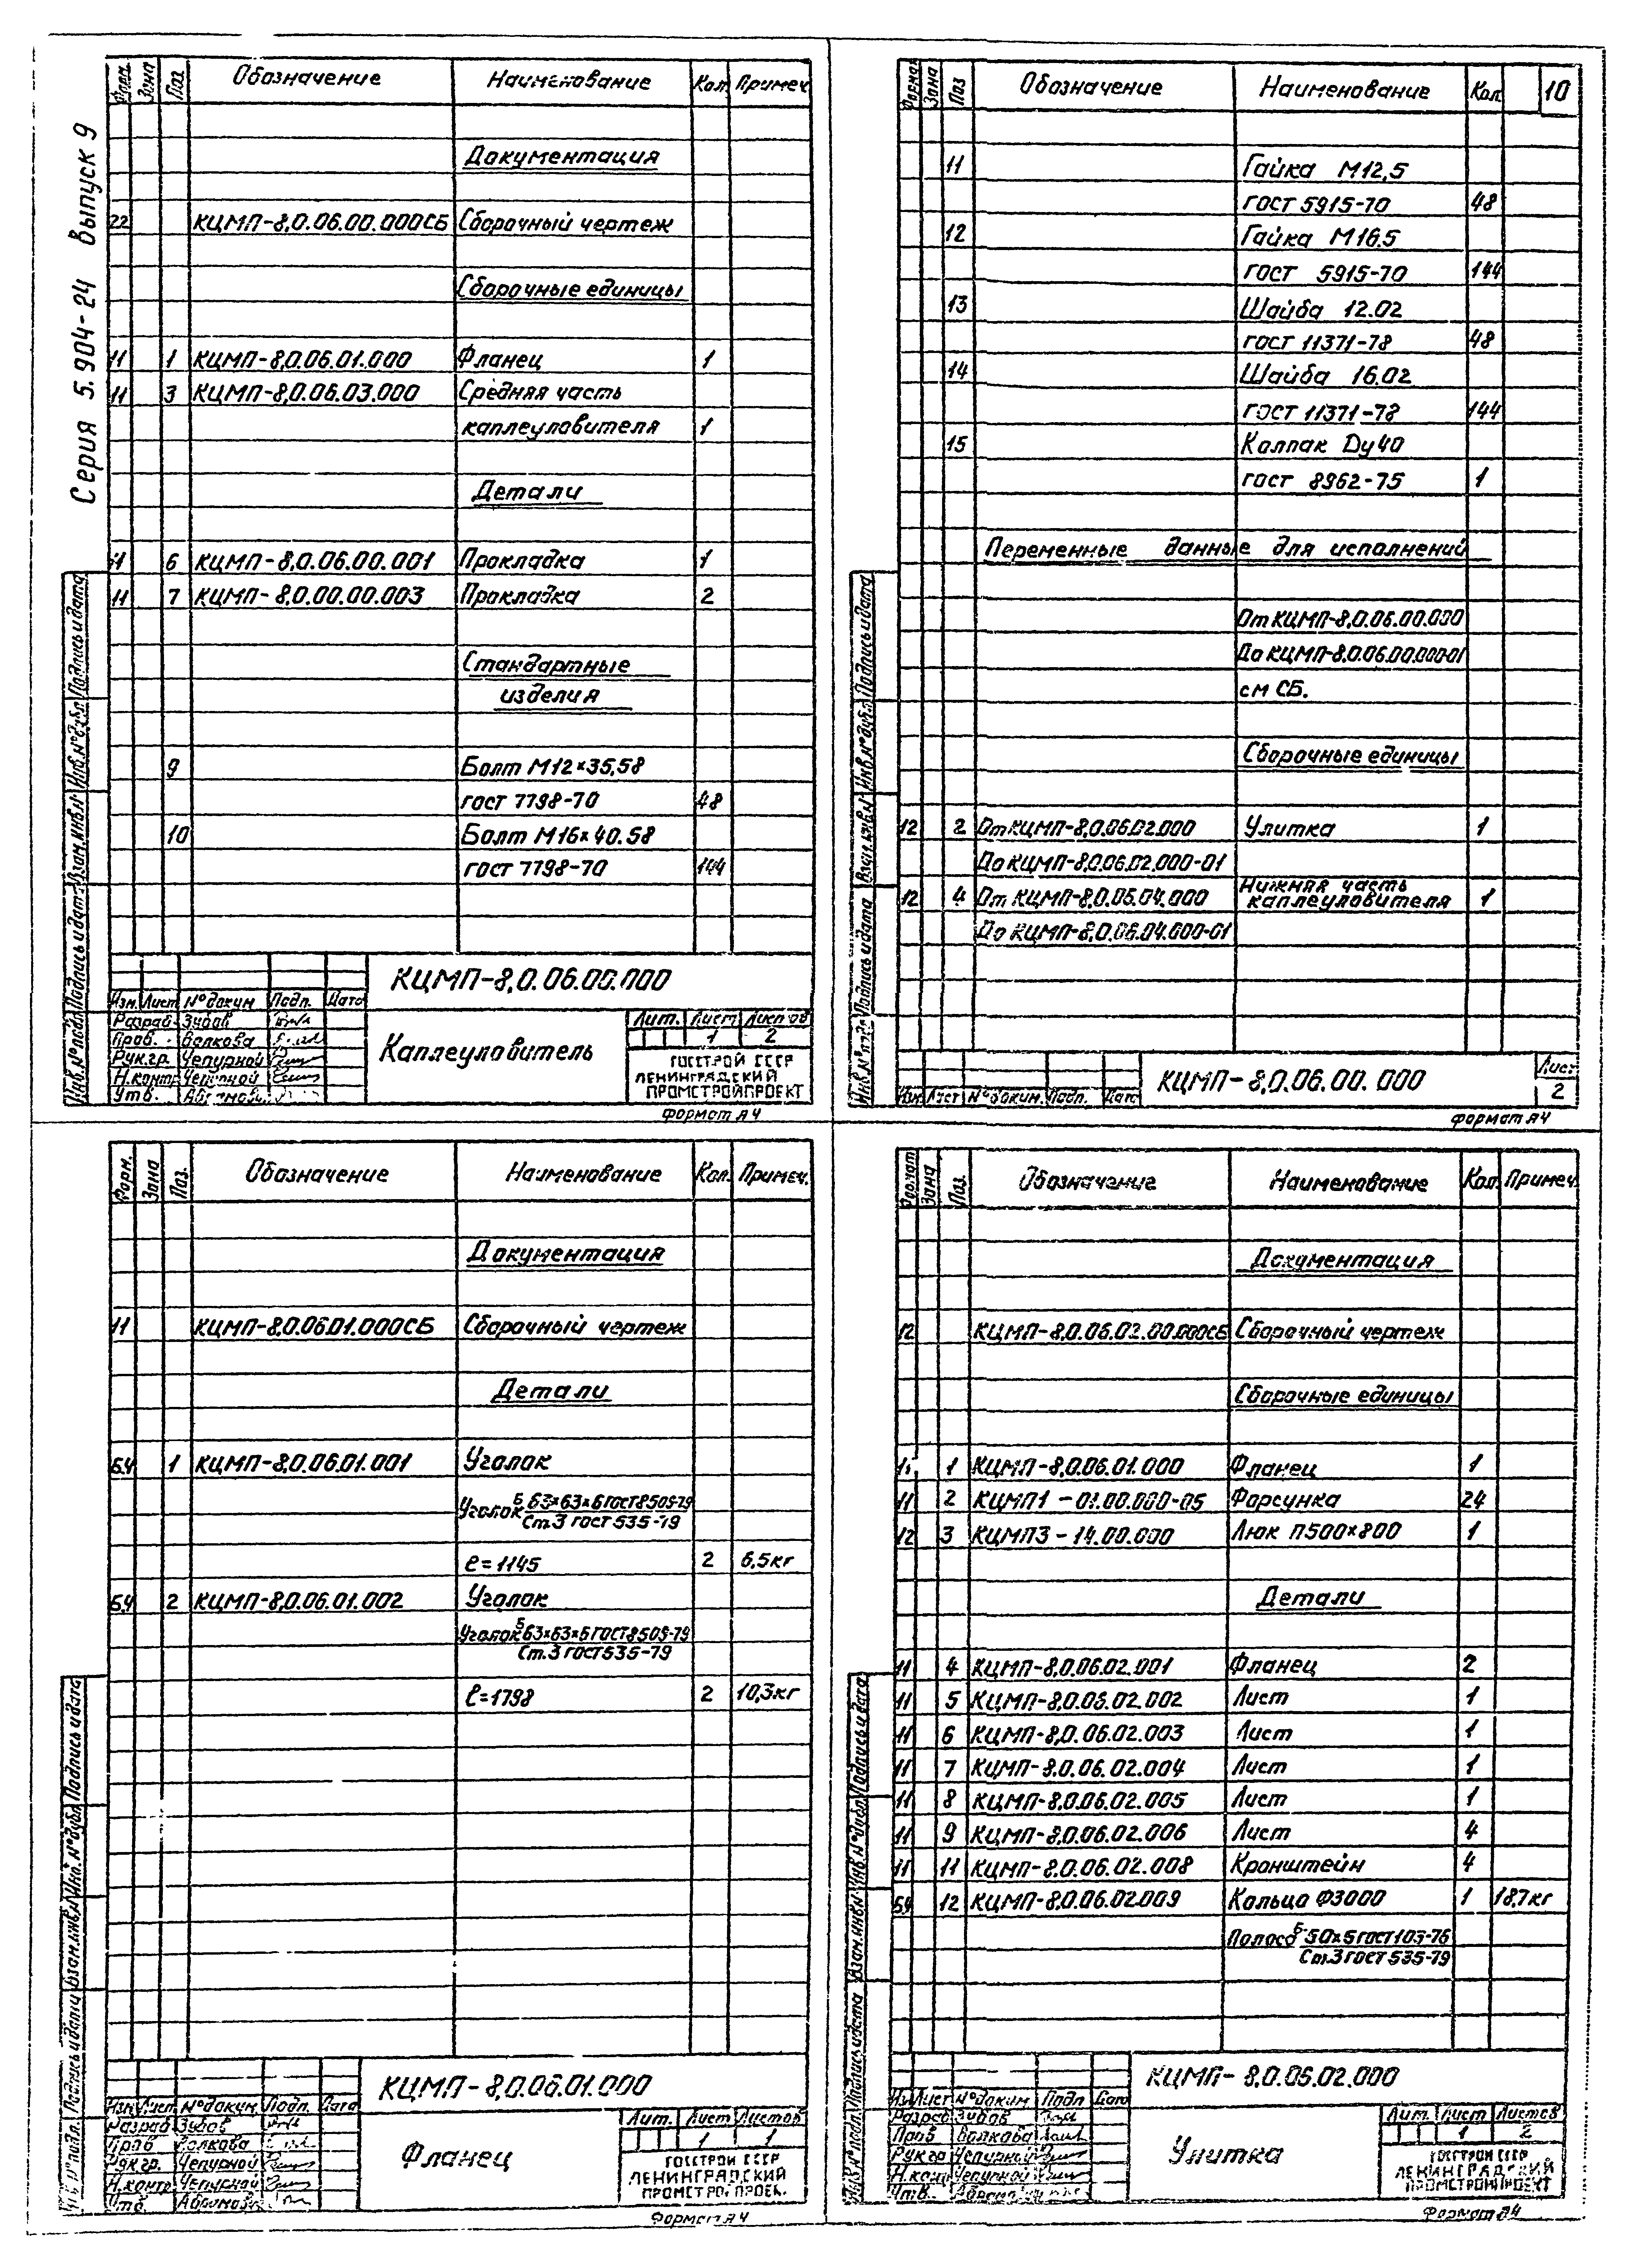 Серия 5.904-24 Выпуск 9
Форм. Зона Поз. Обозначение Наименование Кол. Примеч.
Документация
22 КЦМП-8,0.06.00.000СБ Сборочный чертеж
Сборочные единицы
11 1 КЦМП-8,0.06.01.000 Фланец 1
11 3 КЦМП-8,0.06.03.000 Средняя часть
каплеуловителя 1
Детали
11 6 КЦМП-8,0.06.00.001 Прокладка 1
11 7 КЦМП-8,0.00.00.003 Прокладка 2
Стандартные
изделия
9 Болт М12×35.58
гост 7798-70 48
10 Болт М16×40.58
гост 7798-70 144
КЦМП-8,0.06.00.000
Изм. Лист №докум Подп. Дата
Разраб Зубов
Пров. Волкова
Рук.гр. Чепурной
Н.контр Чепурной
Утв.
Каплеуловитель
Лит. Лист Листов
1 2
ГОССТРОЙ СССР
ЛЕНИНГРАДСКИЙ
ПРОМСТРОЙПРОЕКТ
Формат А4
Инв.№подл. Подпись и дата Взам.инв.№ Инв.№дубл. Подпись и дата
Формат Зона Поз Обозначение Наименование Кол 10
11 Гайка М12,5
гост 5915-70 48
12 Гайка М16.5
гост 5915-70 144
13 Шайба 12.02
гост 11371-78 48
14 Шайба 16.02
гост 11371-78 144
15 Колпак Dу40
гост 8962-75 1
Переменные данные для исполнений
От КЦМП-8,0.06.00.000
До КЦМП-8,0.06.00.000-01
см СБ.
Сборочные единицы
12 2 От КЦМП-8,0.06.02.000 Улитка 1
До КЦМП-8,0.06.02.000-01
12 4 От КЦМП-8,0.06.04.000 Нижняя часть
каплеуловителя 1
До КЦМП-8,0.06.04.000-01
Изм Лист №докум. Подп. Дата
КЦМП-8,0.06.00.000
Лист
2
Формат А4
Инв.№подл Подпись и дата Взам.инв.№ Инв.№дубл. Подпись и дата
Форм. Зона Поз. Обозначение Наименование Кол. Примеч.
Документация
11 КЦМП-8,0.06.01.000СБ Сборочный чертеж
Детали
Б4 1 КЦМП-8,0.06.01.001 Уголок
Уголок Б 63×63×6 ГОСТ 8509-79
Ст.3 гост 535-79
ℓ=1145 2 6,5кг
Б4 2 КЦМП-8,0.06.01.002 Уголок
Уголок Б 63×63×6 ГОСТ 8509-79
Ст.3 гост 535-79
ℓ=1798 2 10,3кг
КЦМП-8,0.06.01.000
Изм Лист №докум Подп. Дата
Разраб Зубов
Пров Волкова
Рук.гр. Чепурной
Н.контр Чепурной
Утв.
Фланец
Лит. Лист Листов
1 1
ГОССТРОЙ СССР
ЛЕНИНГРАДСКИЙ
ПРОМСТРО. ПРОЕК.
Формат А4
Инв.№подл. Подпись и дата Взам.инв.№ Инв.№дубл. Подпись и дата
Формат Зона Поз. Обозначение Наименование Кол. Примеч.
Документация
12 КЦМП-8,0.06.02.00.000СБ Сборочный чертеж
Сборочные единицы
11 1 КЦМП-8,0.06.01.000 Фланец 1
11 2 КЦМП1-01.00.000-05 Форсунка 24
12 3 КЦМП3-14.00.000 Люк П500×800 1
Детали
11 4 КЦМП-8,0.06.02.001 Фланец 2
11 5 КЦМП-8,0.06.02.002 Лист 1
11 6 КЦМП-8,0.06.02.003 Лист 1
11 7 КЦМП-8,0.06.02.004 Лист 1
11 8 КЦМП-8,0.06.02.005 Лист 1
11 9 КЦМП-8,0.06.02.006 Лист 4
11 11 КЦМП-8,0.06.02.008 Кронштейн 4
Б4 12 КЦМП-8,0.06.02.009 Кольцо Ф3000 1 18,7кг
Полоса Б-50×5 ГОСТ 103-76
Ст.3 ГОСТ 535-79
КЦМП-8,0.06.02.000
Изм Лист №докум Подп Дата
Разраб Зубов
Пров Волкова
Рук.гр Чепурной
Н.конт Чепурной
Утв.
Улитка
Лит. Лист Листов
1 2
ГОССТРОЙ СССР
ЛЕНИНГРАДСКИЙ
ПРОМСТРОЙПРОЕКТ
Формат А4
Инв.№подл. Подпись и дата Взам.инв.№ Инв.№дубл. Подпись и дата